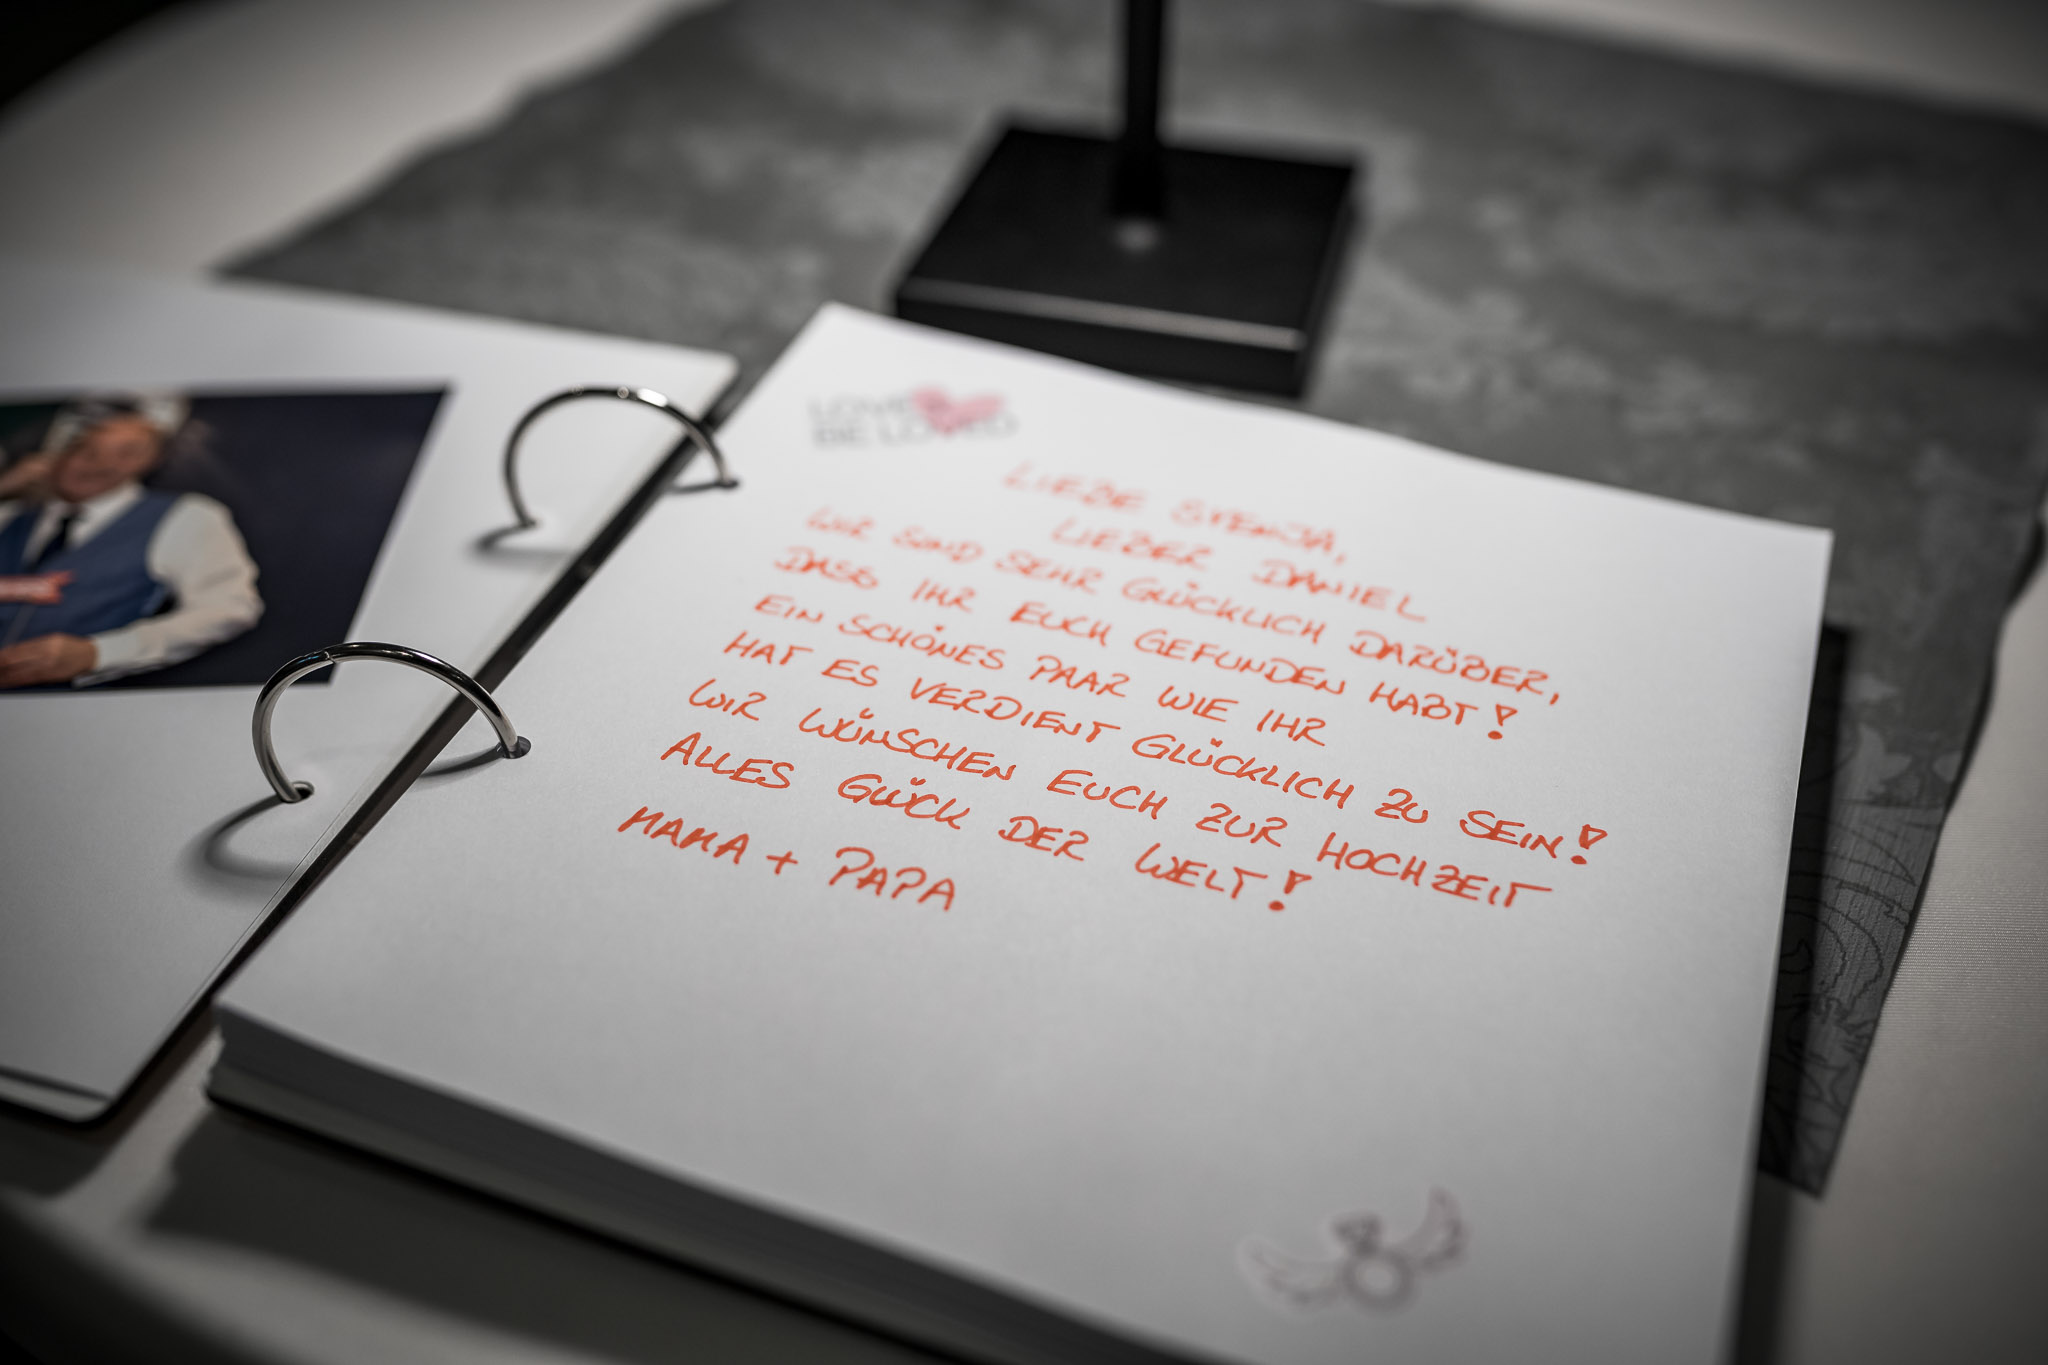 LOVE &
BE LOVED
LIEBE SVENJA,
LIEBER DANIEL
WIR SIND SEHR GLÜCKLICH DARÜBER,
DASS IHR EUCH GEFUNDEN HABT!
EIN SCHÖNES PAAR WIE IHR
HAT ES VERDIENT GLÜCKLICH ZU SEIN!
WIR WÜNSCHEN EUCH ZUR HOCHZEIT
ALLES GLÜCK DER WELT!
MAMA + PAPA